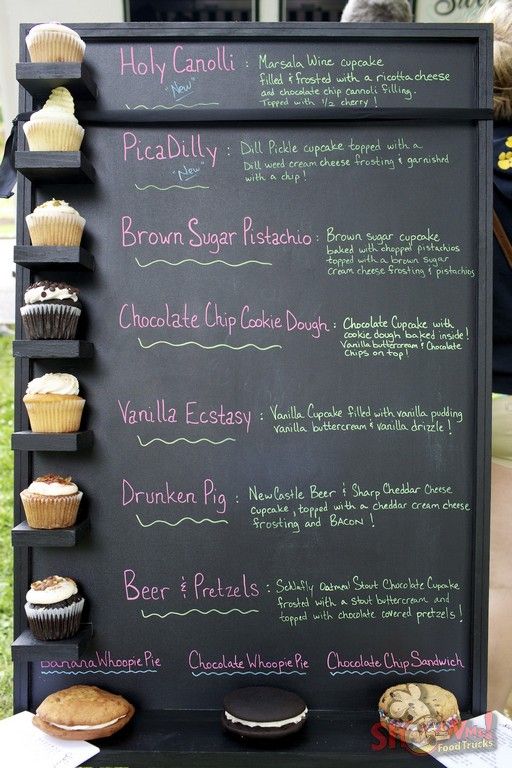 Holy Canolli : Marsala Wine cupcake
"New"
filled & frosted with a ricotta cheese
and chocolate chip cannoli filling.
Topped with 1/2 cherry!
PicaDilly : Dill Pickle cupcake topped with a
"New"
Dill weed cream cheese frosting & garnished
with a chip!
Brown Sugar Pistachio : Brown sugar cupcake
baked with chopped pistachios
topped with a brown sugar
cream cheese frosting & pistachios
Chocolate Chip Cookie Dough : Chocolate Cupcake with
cookie dough baked inside!
Vanilla buttercream & Chocolate
chips on top!
Vanilla Ecstasy : Vanilla Cupcake filled with vanilla pudding
vanilla buttercream & vanilla drizzle!
Drunken Pig : New Castle Beer & Sharp Cheddar Cheese
cupcake, topped with a cheddar cream cheese
frosting and BACON!
Beer & Pretzels : Schlafly Oatmeal Stout Chocolate Cupcake
frosted with a stout buttercream and
topped with chocolate covered pretzels!
Banana Whoopie Pie Chocolate Whoopie Pie Chocolate Chip Sandwich
Food Trucks